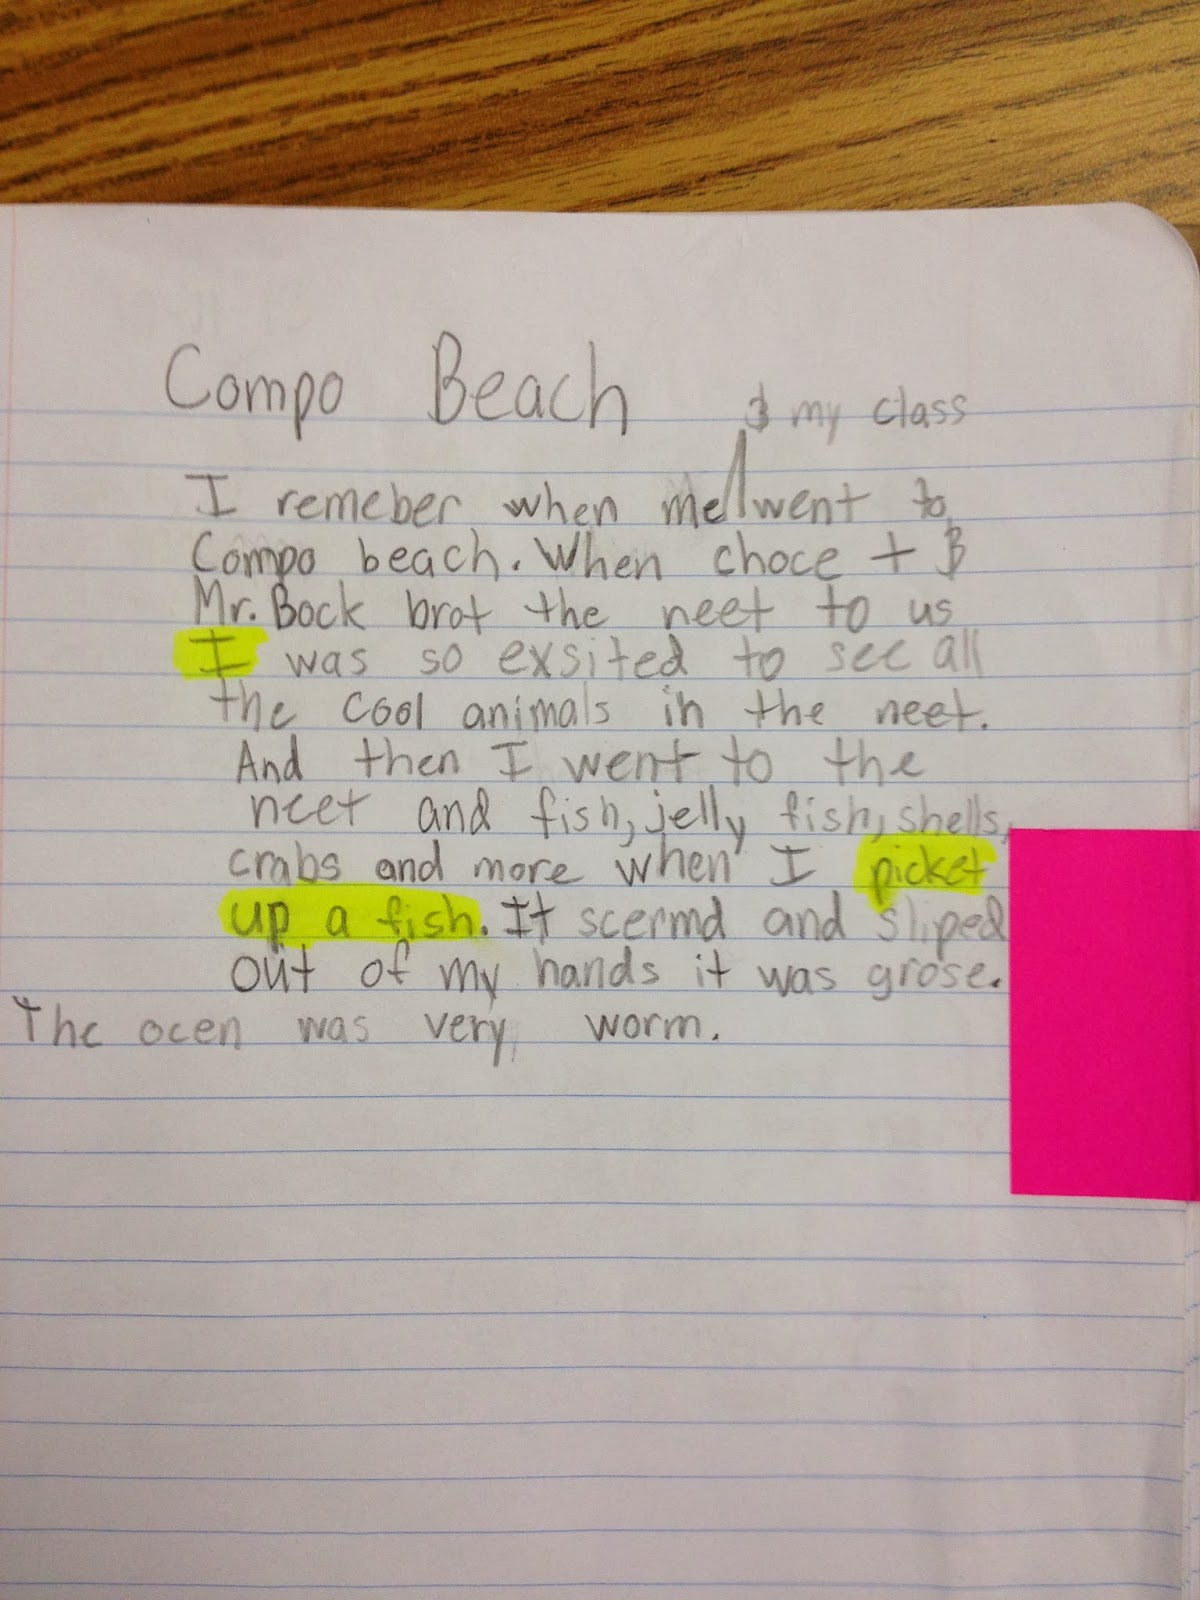 Compo Beach
& my class
I remeber when me went to
Compo beach. When choce + B
Mr. Bock brot the neet to us
I was so exsited to see all
the cool animals in the neet.
And then I went to the
neet and fish, jelly fish, shells,
crabs and more when I picket
up a fish. It scermd and sliped
out of my hands it was grose.
The ocen was very worm.